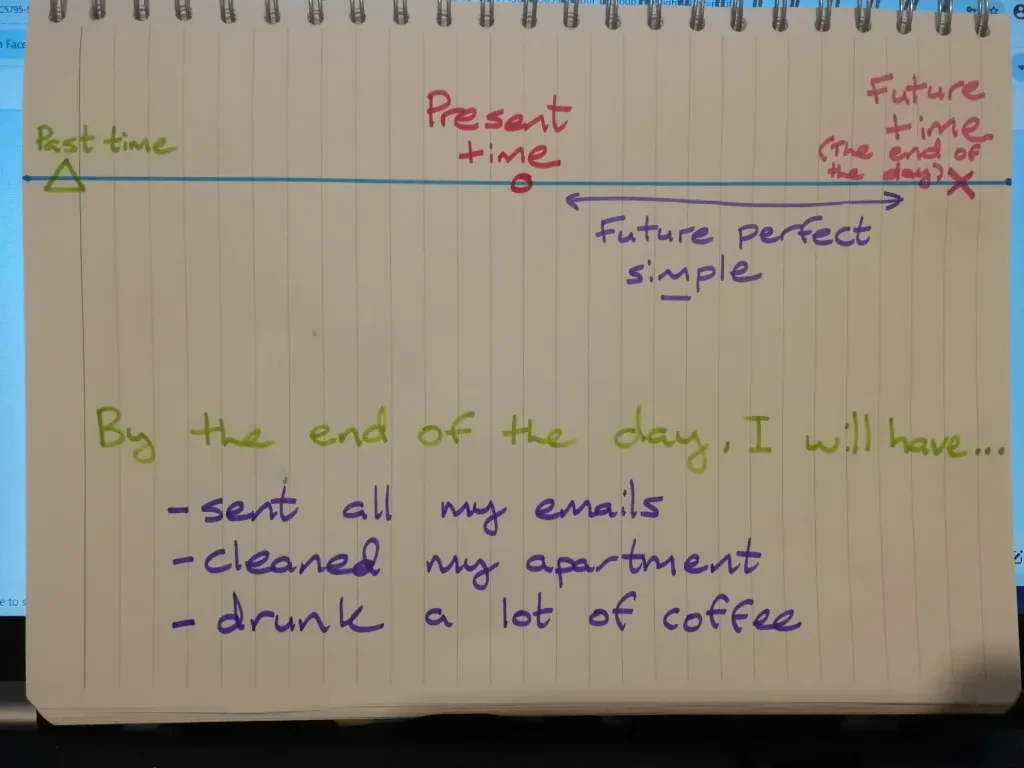 Past time
Present
time
Future
time
(The end of
the day)
Future perfect
simple
By the end of the day, I will have...
- sent all my emails
- cleaned my apartment
- drunk a lot of coffee